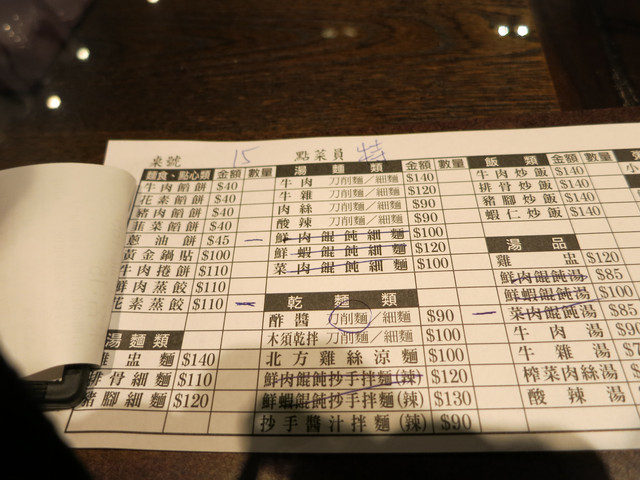 桌號 15 點菜員 特
麵食、點心類 金額 數量
牛肉餡餅 $40
花素餡餅 $40
豬肉餡餅 $40
韮菜餡餅 $40
蔥油餅 $45
黃金鍋貼 $100
牛肉捲餅 $110
鮮肉蒸餃 $110
花素蒸餃 $110
湯麵類
雞盅麵 $140
排骨細麵 $110
豬腳細麵 $120
湯麵類 金額 數量
牛肉 刀削麵／細麵 $140
牛雜 刀削麵／細麵 $120
肉絲 刀削麵／細麵 $90
酸辣 刀削麵／細麵 $90
鮮肉餛飩細麵 $100
鮮蝦餛飩細麵 $120
菜肉餛飩細麵 $100
乾麵類
酢醬 刀削麵／細麵 $90
木須乾拌 刀削麵／細麵 $100
北方雞絲涼麵 $100
鮮肉餛飩抄手拌麵(辣) $120
鮮蝦餛飩抄手拌麵(辣) $130
抄手醬汁拌麵(辣) $90
飯類 金額 數量
牛肉炒飯 $140
排骨炒飯 $140
豬腳炒飯 $140
蝦仁炒飯 $140
湯品
雞盅 $120
鮮肉餛飩湯 $85
鮮蝦餛飩湯 $100
菜肉餛飩湯 $85
牛肉湯
牛雜湯
榨菜肉絲湯
酸辣湯